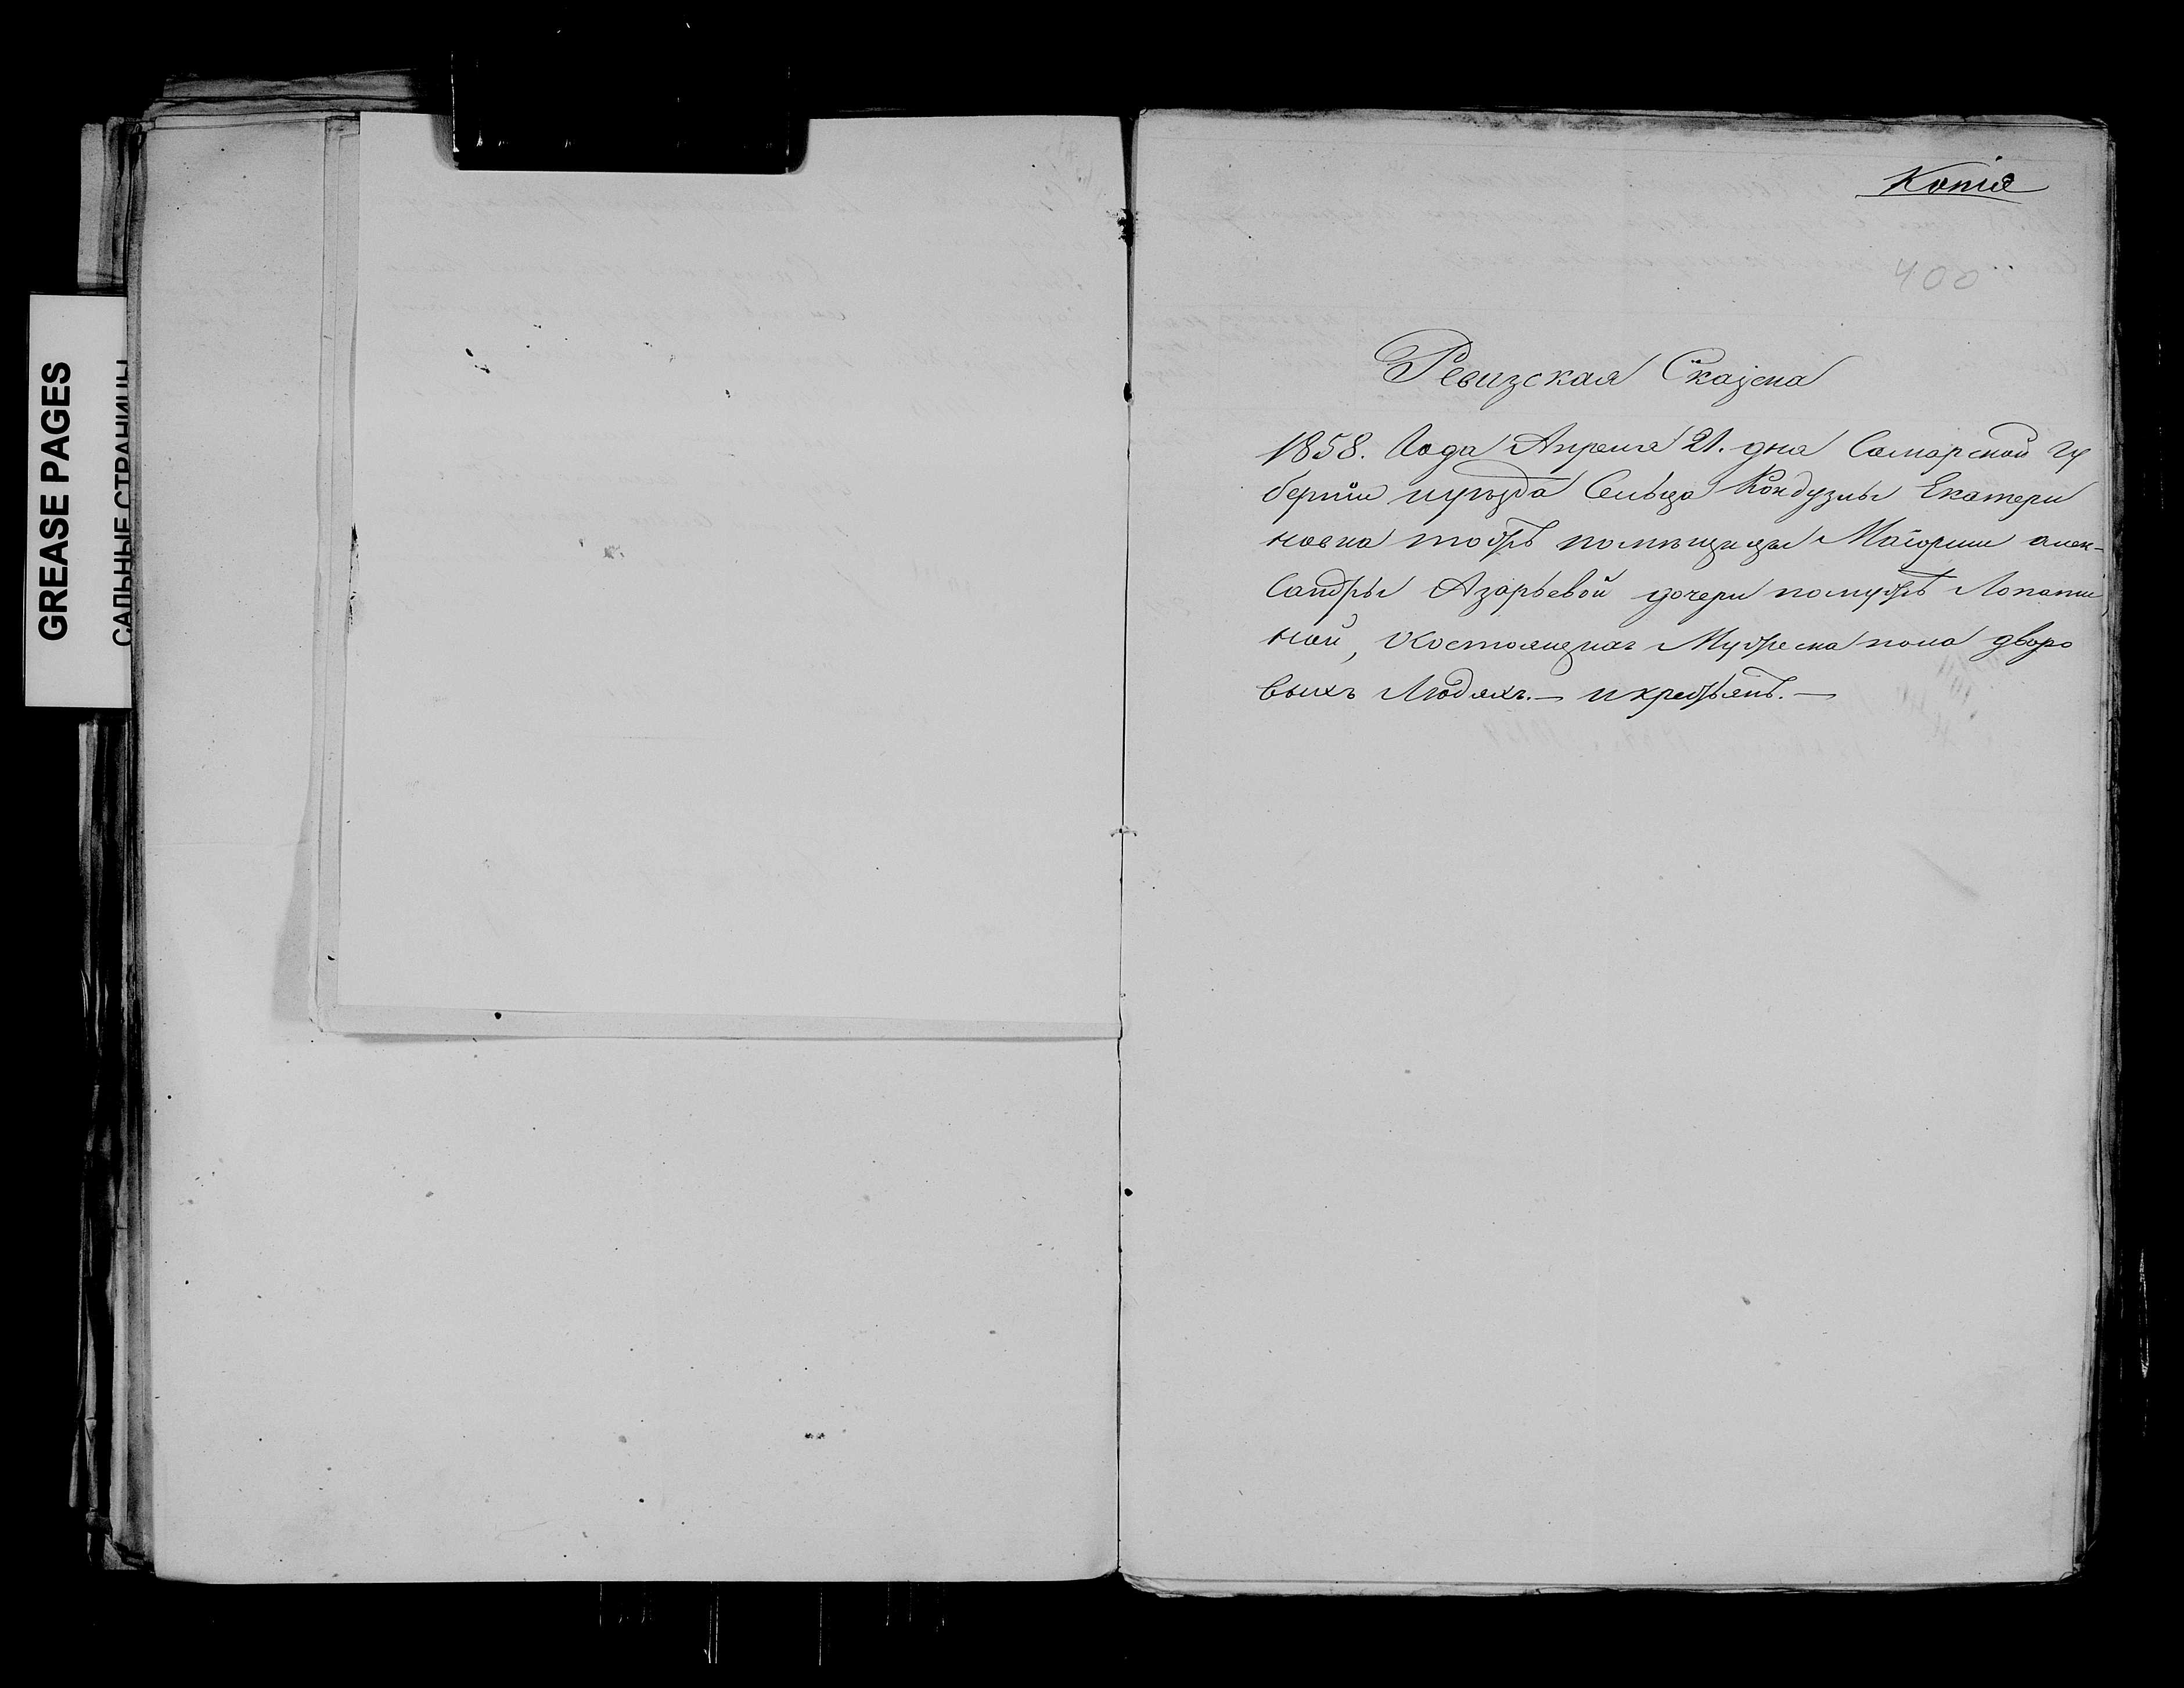 GREASE PAGES
САЛЬНЫЕ СТРАНИЦЫ
Копiя
400
Ревизская Сказка
1858. Года Апреля 21. дня Самарской гу
бернiи иуѣзда Сельца Кондузлы Екатери
новка тожъ помѣщицы Маiорши алек-
Сандры Азарьевой дочери помужѣ Лопати
ной, Осостоящихъ Мужеска пола дворо
выхъ Людяхъ.— икрестьянъ.—